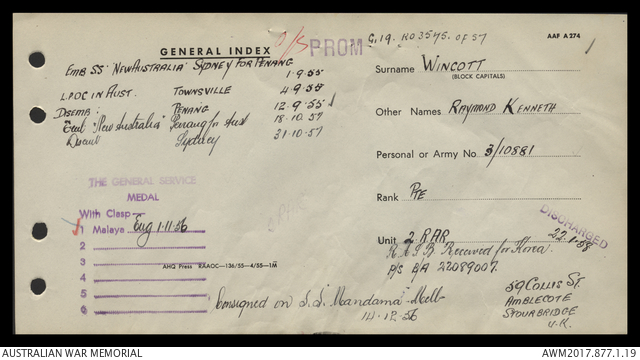 G.19. R03575. OF 57
AAF A 274
GENERAL INDEX O/S PROM
1
EMB SS 'NEW AUSTRALIA' SYDNEY FOR PENANG
1.9.55
L.POC IN AUST. TOWNSVILLE 4.9.55
DISEMB: PENANG 12.9.55
Emb "New Australia" Penang for Aust 18.10.57
Disemb Sydney 21.10.57
Surname WINCOTT
(BLOCK CAPITALS)
Other Names RAYMOND KENNETH
Personal or Army No. 3/10881
Rank PTE
Unit 2 RAR
DISCHARGED
22.1.58
R.A.S.B. Received for Korea.
P/S BA 22089007.
THE GENERAL SERVICE
MEDAL
With Clasp
1 Malaya Eng 1.11.56
2
3
4
5
6
AHQ Press RAAOC—136/55—4/55—1M
Consigned on S.S. Mandama Melb
14.12.56
59 COLLIS ST.
AMBLECOTE
STOURBRIDGE
U.K.
AUSTRALIAN WAR MEMORIAL
AWM2017.877.1.19